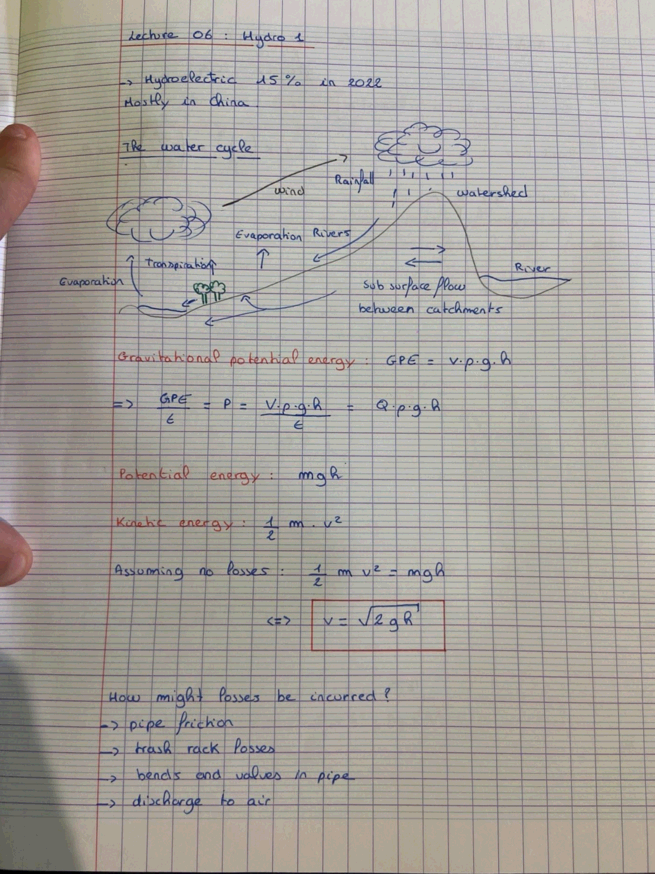 Lecture 06 : Hydro 1
-> Hydroelectric 15% in 2022
Mostly in China
The water cycle
Rainfall
wind
watershed
Evaporation Rivers
Transpiration
River
Evaporation
sub surface flow
between catchments
Gravitational potential energy : GPE = V.ρ.g.h
=> GPE/t = P = V.ρ.g.h/t = Q.ρ.g.h
Potential energy : mgh
Kinetic energy : 1/2 m . v²
Assuming no losses : 1/2 m v² = mgh
<=> v = √2gh
How might losses be incurred ?
-> pipe friction
-> trash rack losses
-> bends and valves in pipe
-> discharge to air